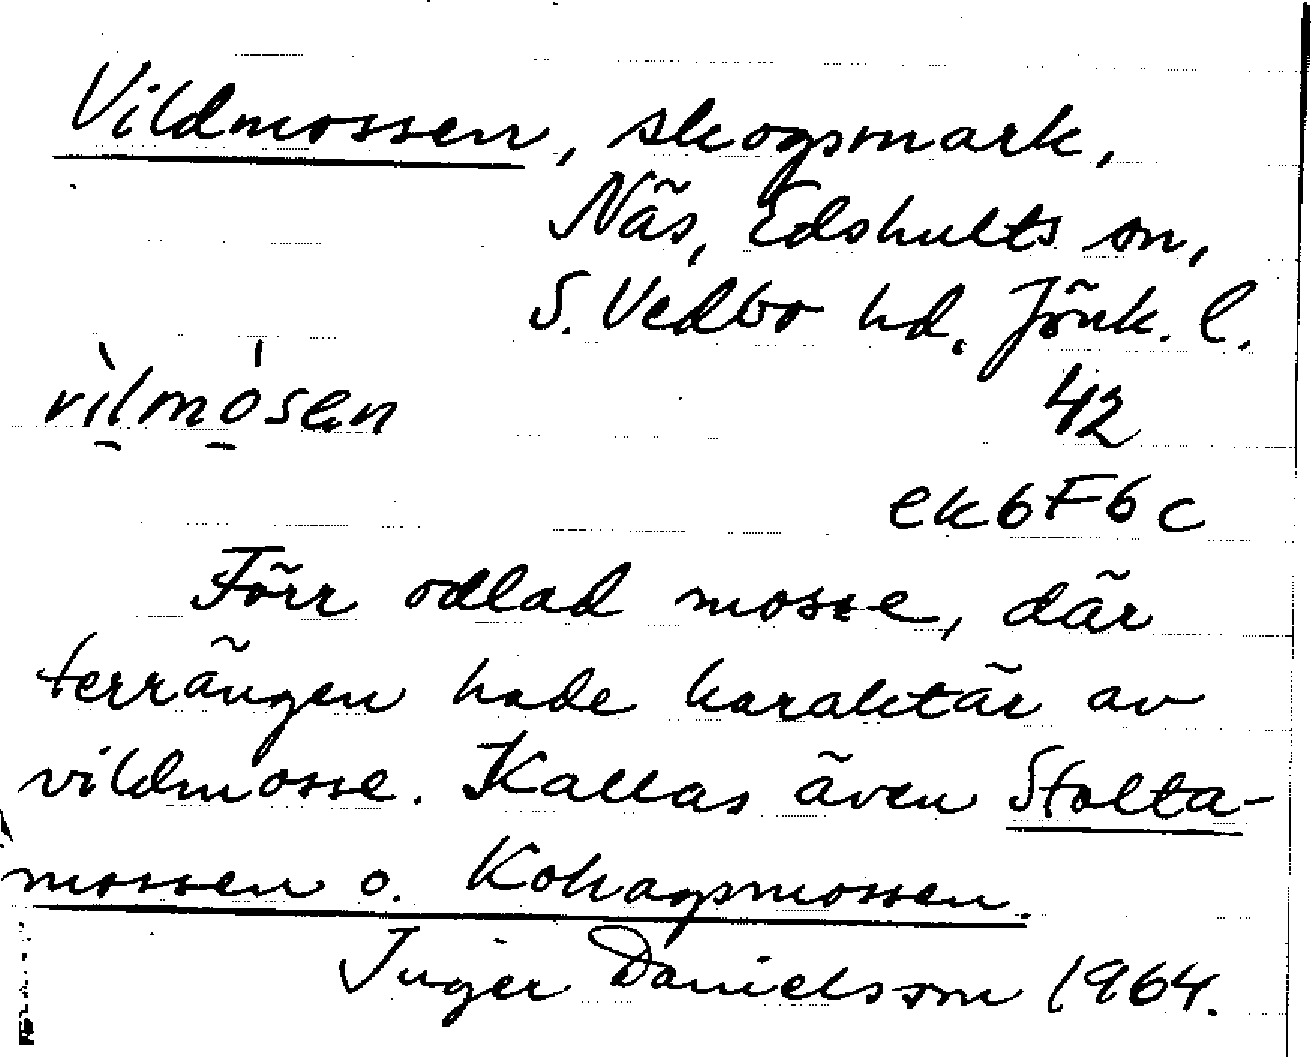 Vildmossen, skogsmark,
Näs, Edshults sn,
S. Vedbo hd. Jönk. l.
vìlmósen
42
ek 6F6c
Förr odlad mosse, där
terrängen hade karaktär av
vildmosse. Kallas även Stolta-
mossen o. Kohagsmossen.
Inger Danielsson 1964.